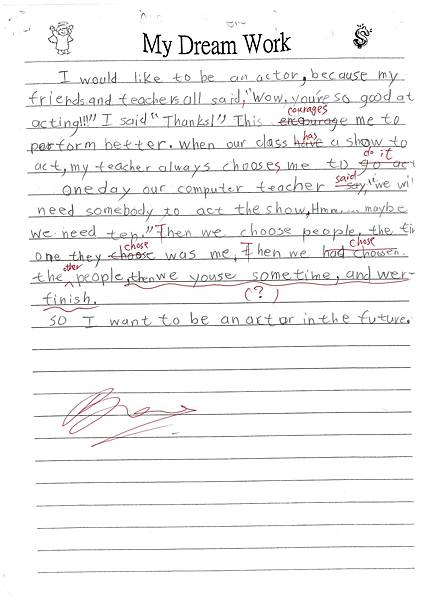 My Dream Work
I would like to be an actor, because my
friends and teachers all said, "Wow, you're so good at
acting!!!" I said "Thanks!" This encourage courages me to
perform better. When our class have has a show to
act, my teacher always chooses me to go act do it
One day our computer teacher say, said "we wi
need somebody to act the show, Hmm..... maybe
we need ten." Then we choose people, the fi
one they choose chose was me, Then we had chosen. chose
the other people, then we youse sometime, and wer-
finish. (?)
so I want to be an actor in the future.